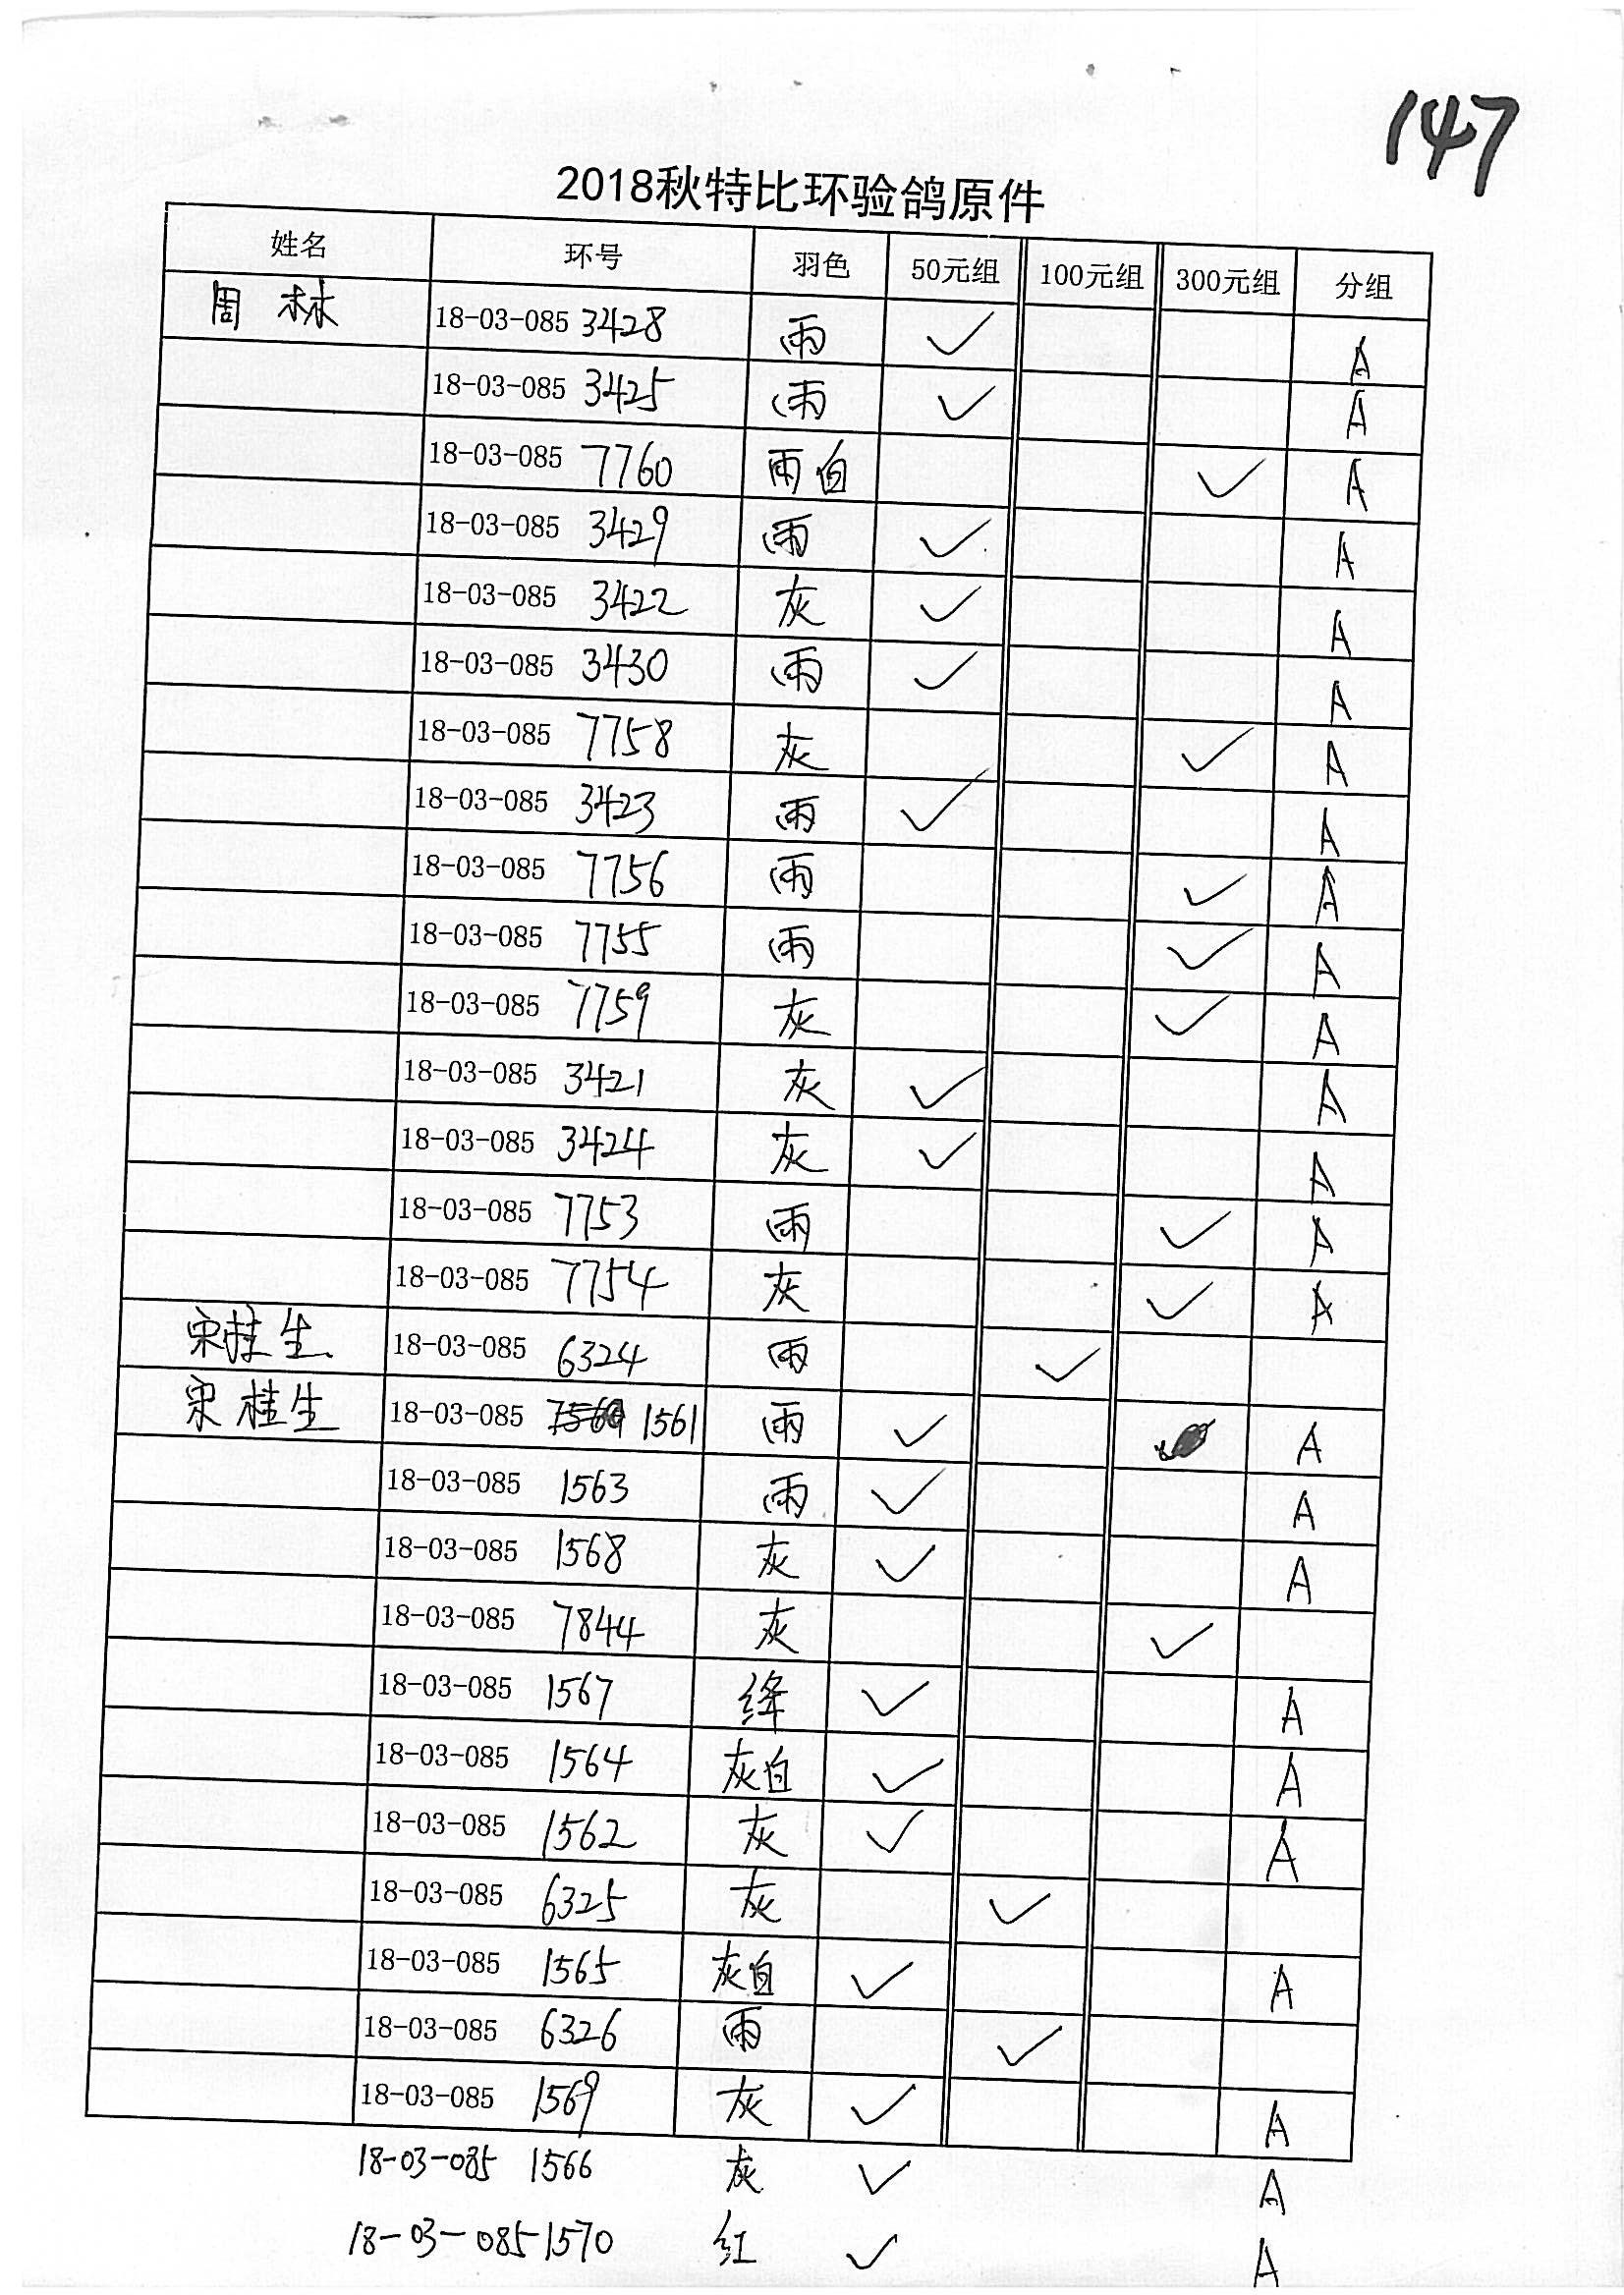 147
2018秋特比环验鸽原件
姓名 环号 羽色 50元组 100元组 300元组 分组
周林 18-03-085 3428 雨 ✓ A
18-03-085 3425 雨 ✓ A
18-03-085 7760 雨白 ✓ A
18-03-085 3429 雨 ✓ A
18-03-085 3422 灰 ✓ A
18-03-085 3430 雨 ✓ A
18-03-085 7758 灰 ✓ A
18-03-085 3423 雨 ✓ A
18-03-085 7756 雨 ✓ A
18-03-085 7755 雨 ✓ A
18-03-085 7759 灰 ✓ A
18-03-085 3421 灰 ✓ A
18-03-085 3424 灰 ✓ A
18-03-085 7753 雨 ✓ A
18-03-085 7754 灰 ✓ A
宋桂生 18-03-085 6324 雨 ✓
宋桂生 18-03-085 1561 雨 ✓ A
18-03-085 1563 雨 ✓ A
18-03-085 1568 灰 ✓ A
18-03-085 7844 灰 ✓
18-03-085 1567 绛 ✓ A
18-03-085 1564 灰白 ✓ A
18-03-085 1562 灰 ✓ A
18-03-085 6325 灰 ✓
18-03-085 1565 灰白 ✓ A
18-03-085 6326 雨 ✓
18-03-085 1569 灰 ✓ A
18-03-085 1566 灰 ✓ A
18-03-085-1570 红 ✓ A